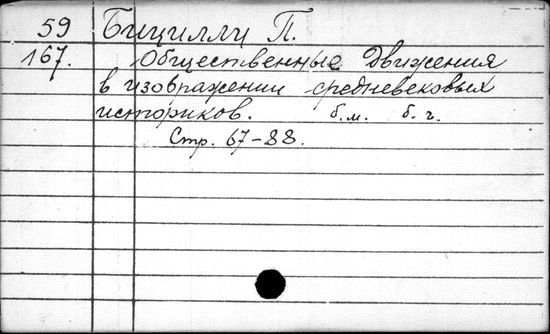 59 Бициллу П.
167. Общественные движения
в изображении средневековых
историков. б.м. б.г.
Стр. 67-88.